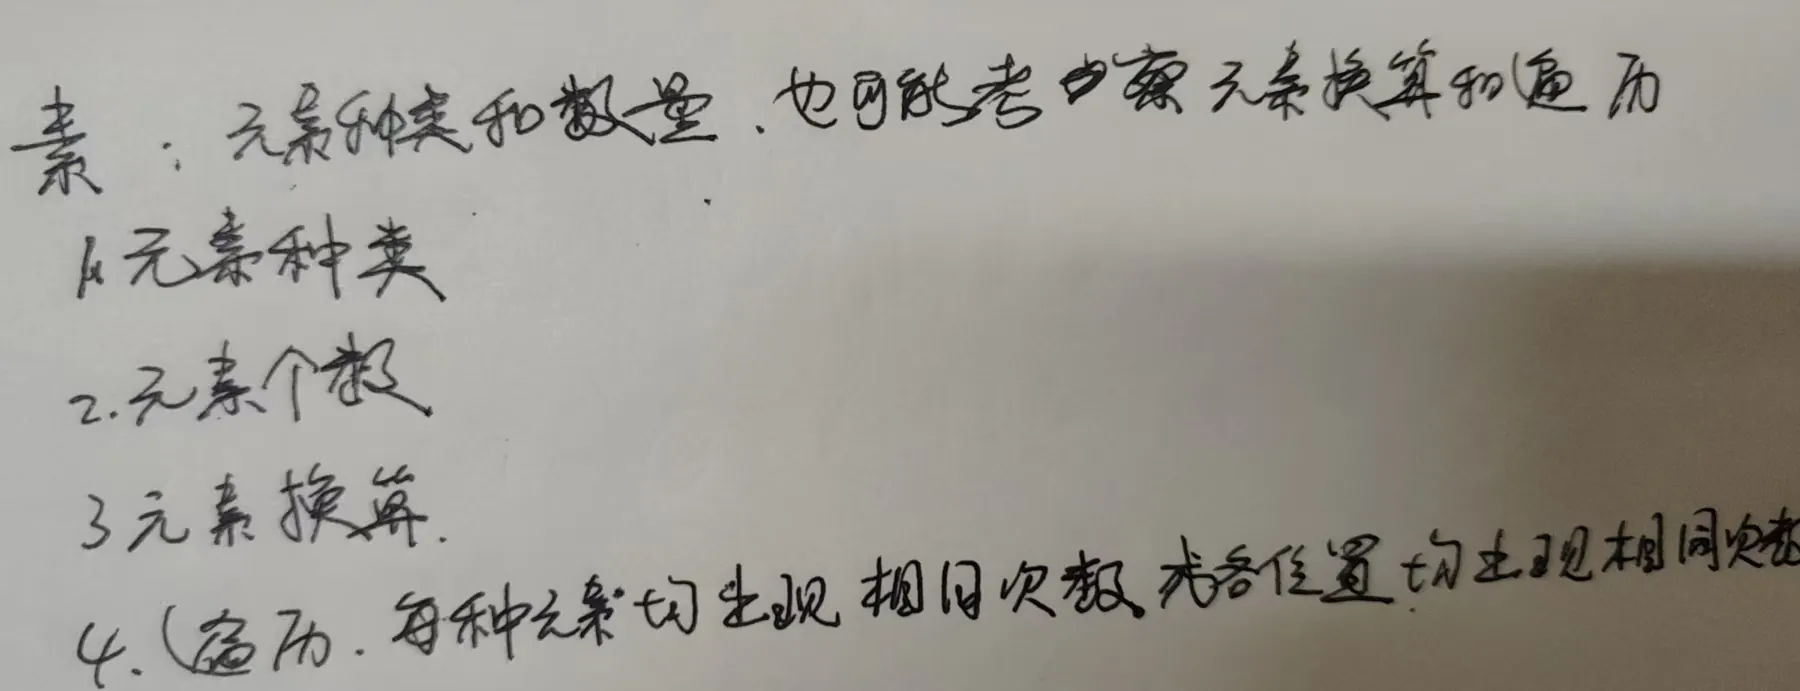 素：元素种类和数量、也可能考察元素换算和遍历
1.元素种类
2.元素个数
3元素换算.
4.遍历.每种元素均出现相同次数。或各位置均出现相同次数